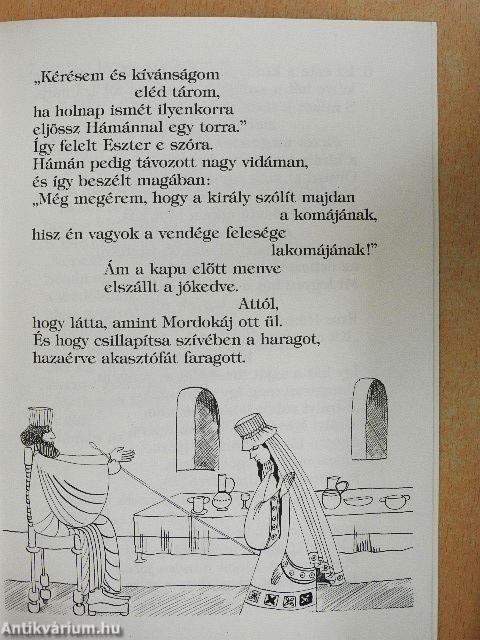 „Kérésem és kívánságom
eléd tárom,
ha holnap ismét ilyenkorra
eljössz Hámánnal egy torra.”
Így felelt Eszter e szóra.
Hámán pedig távozott nagy vidáman,
és így beszélt magában:
„Még megérem, hogy a király szólít majdan
a komájának,
hisz én vagyok a vendége felesége
lakomájának!”
Ám a kapu előtt menve
elszállt a jókedve.
Attól,
hogy látta, amint Mordokáj ott ül.
És hogy csillapítsa szívében a haragot,
hazaérve akasztófát faragott.
Antikvárium.hu